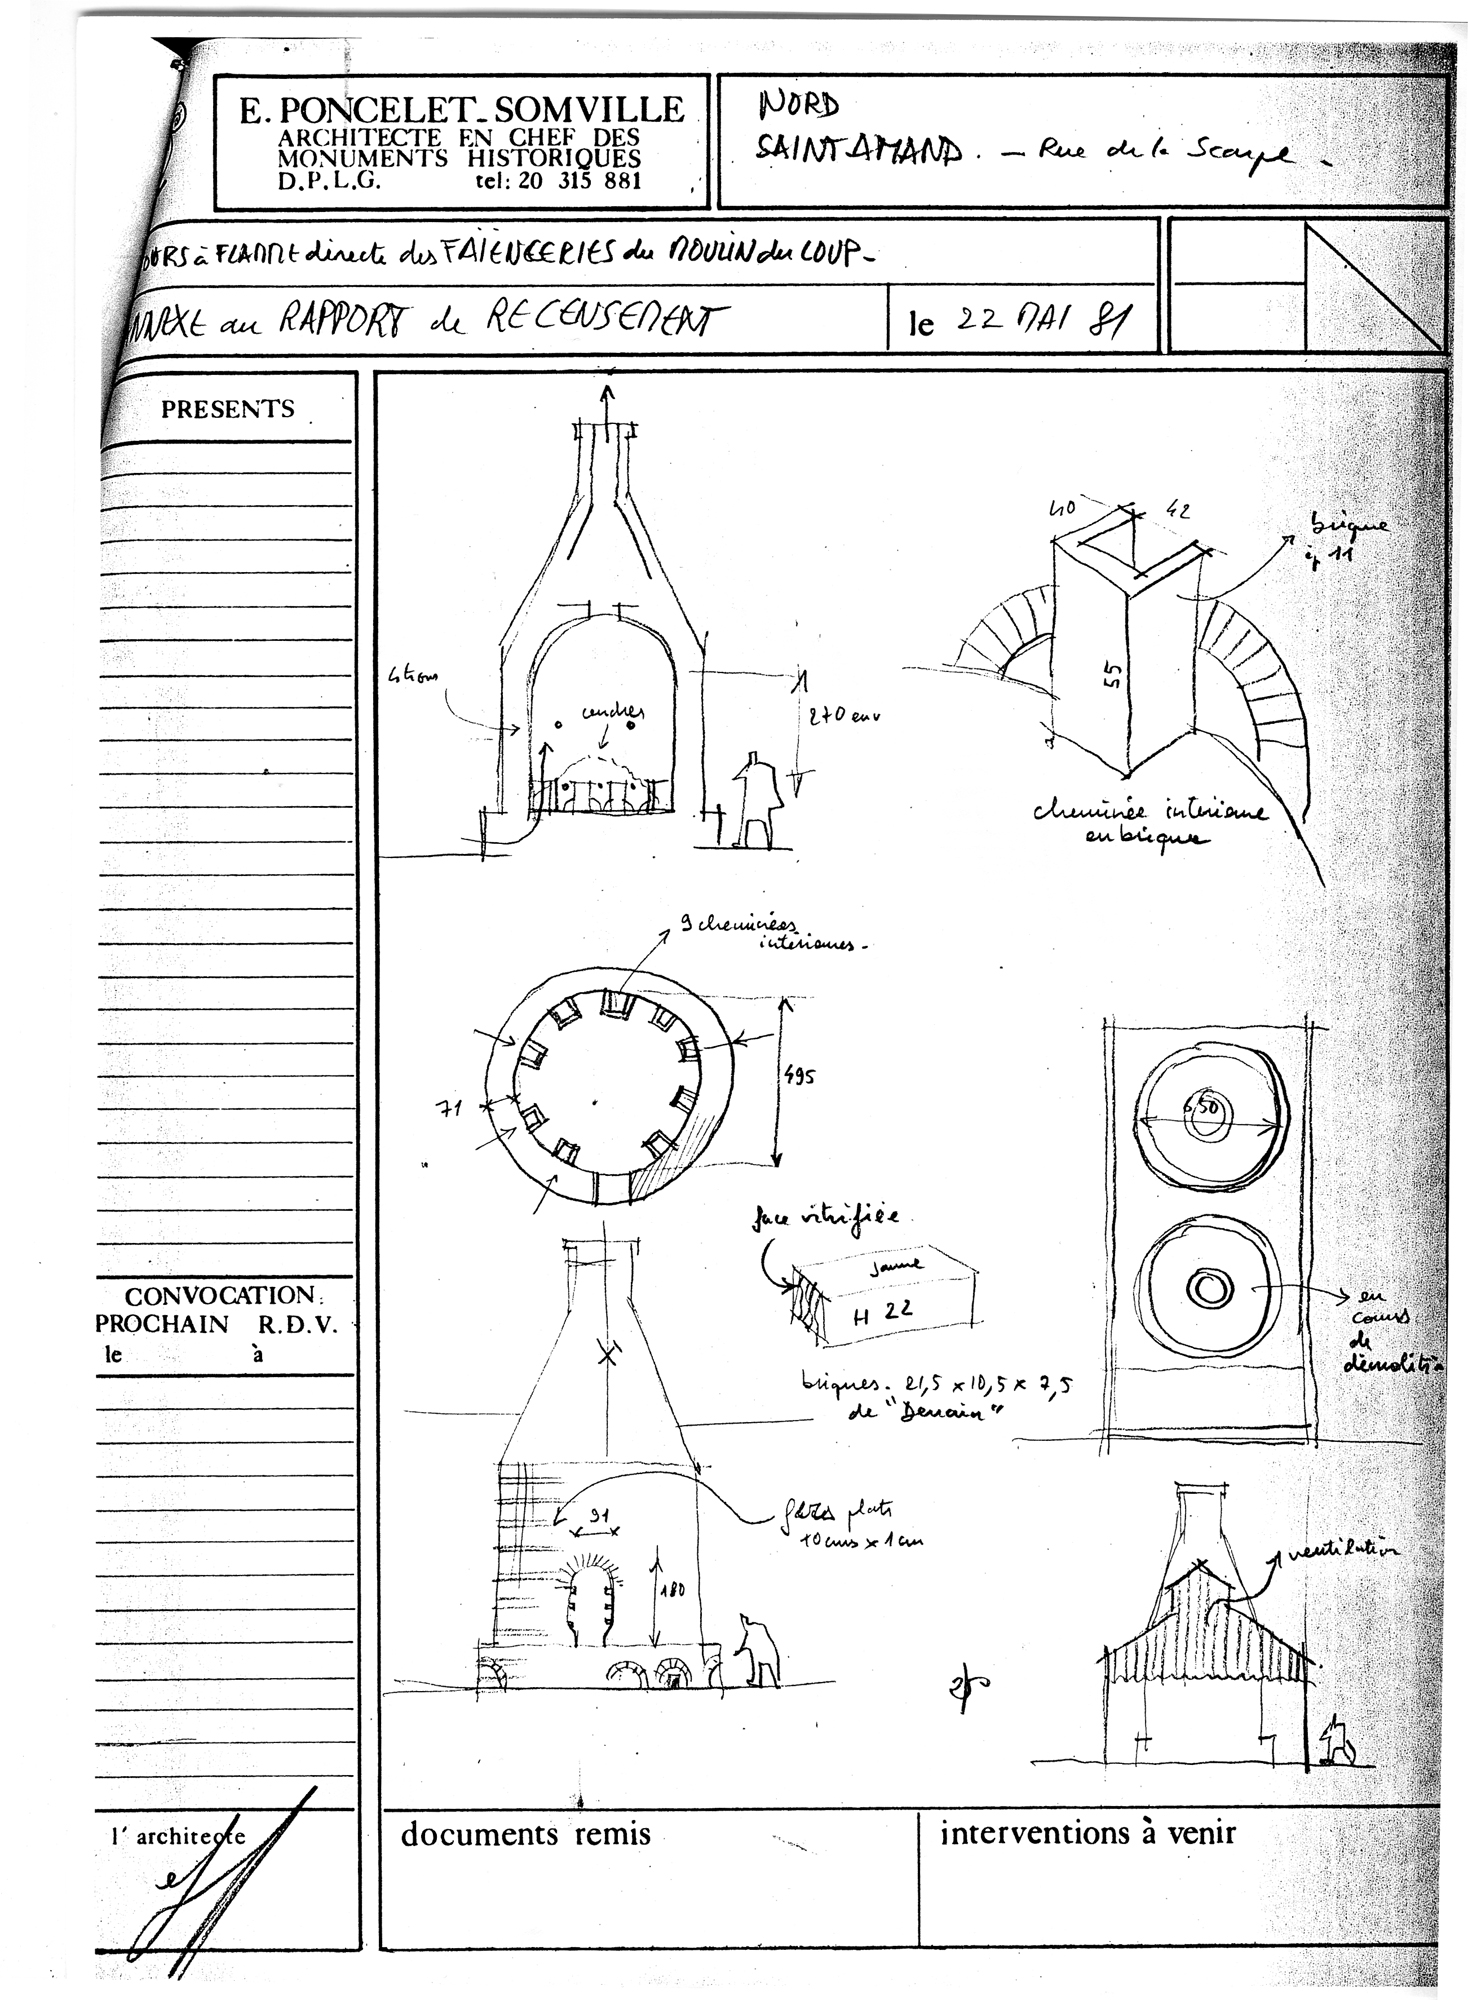 E. PONCELET_SOMVILLE
ARCHITECTE EN CHEF DES
MONUMENTS HISTORIQUES
D.P.L.G. tel: 20 315 881
NORD
SAINT-AMAND. – Rue de la Scarpe –
OURS à FLAMME directe des FAÏENCERIES du MOULIN du LOUP –
NNEXE au RAPPORT de RECENSEMENT
le 22 MAI 81
PRESENTS
40
42
brique
ép 11
55
cheminée intérieure
en brique
4 trous
cendres
270 env
9 cheminées
intérieures –
495
71
650
en
cours
de
démolition
face vitrifiée
Jaune
H 22
briques. 21,5 x 10,5 x 7,5
de "Denain"
CONVOCATION:
PROCHAIN R.D.V.
le à
91
plats
10 cms x 1 cm
180
ventilation
l'architecte
documents remis
interventions à venir